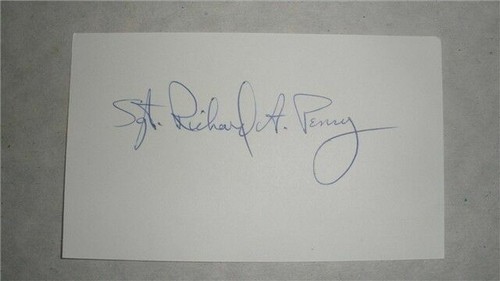 Sgt. Richard A. Penry